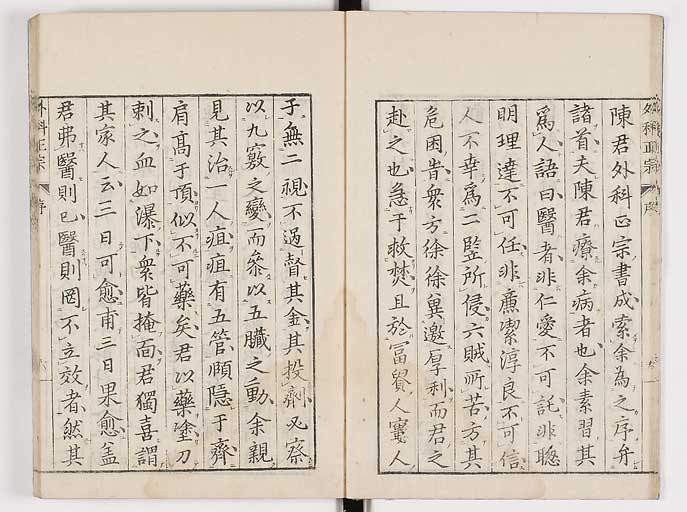 陳君外科正宗書成索余為之序弁
諸首夫陳君療余病者也余素習其
爲人語曰醫者非仁愛不可託非聰
明理達不可任非廉潔淳良不可信
人不幸爲二豎所侵六賊所苦方其
危困昔衆方徐徐冀邀厚利而君之
赴之也急于救焚且於富貴人寠人
子無二視不過督其金其投劑又察
以九竅之變而參以五臟之動余親
見其治一人疽疽有五管頤隱于齊
肩髙于頂似不可藥矣君以藥塗刀
刺之血如瀑下衆皆掩面君獨喜謂
其家人云三日可愈甫三日果愈盖
君弗醫則已醫則罔不立效者然其
外科正宗
序
六
外科正宗